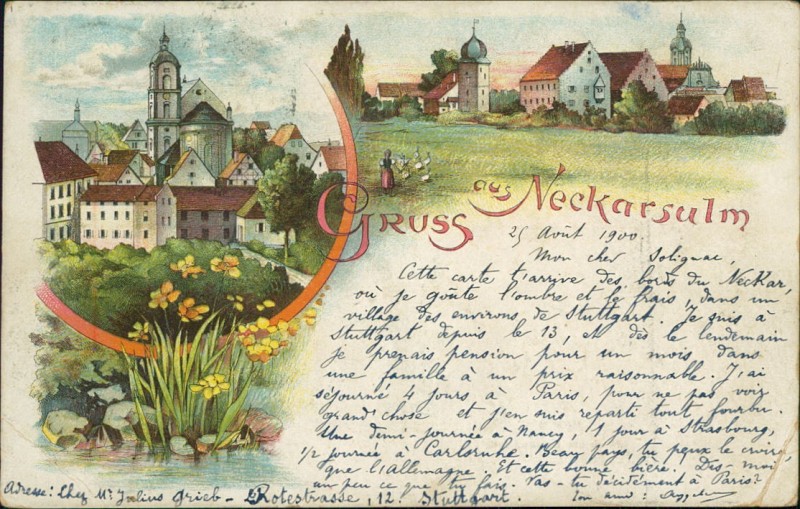 Gruss aus Neckarsulm
25 Août 1900
Mon cher Solignac,
Cette carte t'arrive des bords du Neckar,
où je goûte l'ombre et le frais, dans un
village des environs de Stuttgart. Je suis à
Stuttgart depuis le 13, et dès le lendemain
je prenais pension pour un mois dans
une famille à un prix raisonnable. J'ai
séjourné 4 jours à Paris, pour ne pas voir
grand'chose et j'en suis reparti tout fourbu.
Une demi-journée à Nancy, 1 jour à Strasbourg,
1/2 journée à Carlsruhe. Beau pays, tu peux le croire,
que l'allemagne. Et cette bonne bière. Dis-moi
un peu ce que tu fais. Vas-tu décidément à Paris?
Ton ami:
Adresse: Chez Mr Julius Grieb - Rotestrasse, 12. Stuttgart.